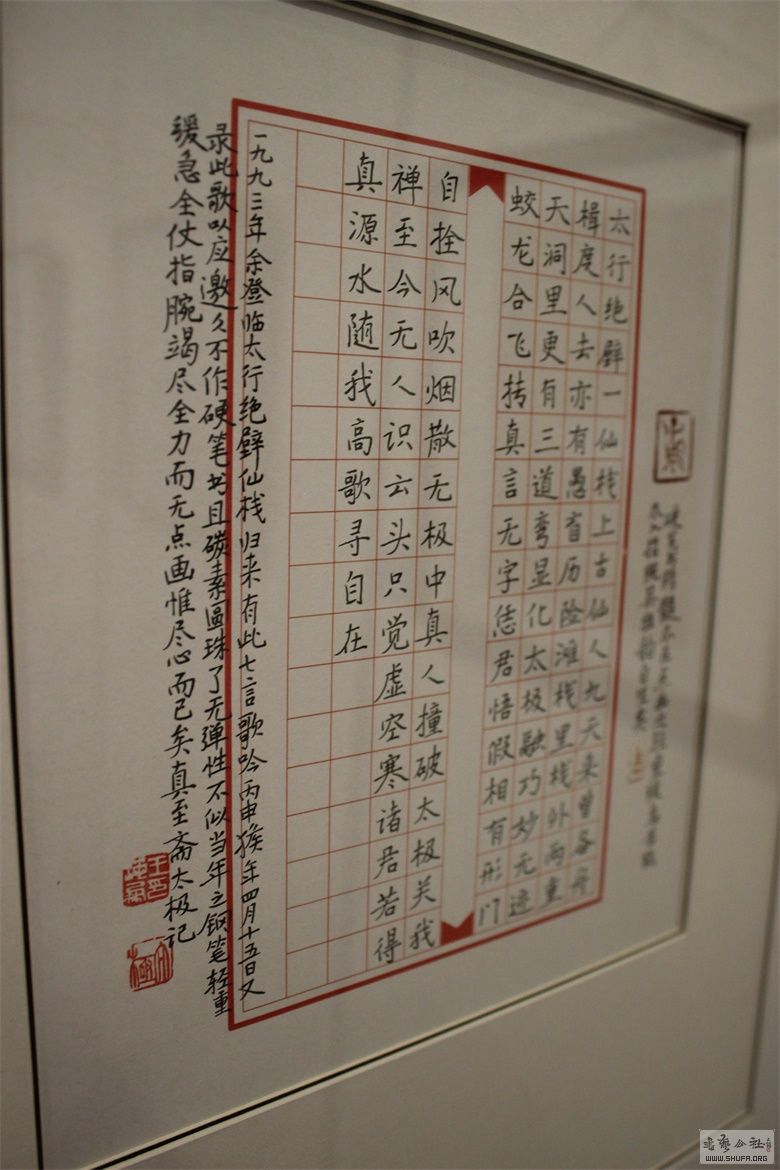 太行绝壁一仙栈上古仙人九天来曾各舟
楫度人去亦有愚盲历险滩栈里栈外两重
天洞里更有三道弯显化太极融巧妙无迹
蛟龙合飞转真言无字恁君悟假相有形门
自拴风吹烟散无极中真人撞破太极关我
禅至今无人识云头只觉虚空寒诸君若得
真源水随我高歌寻自在
一九九三年余登临太行绝壁仙栈归来有此七言歌吟丙申猴年四月十五日又
录此歌以应邀久不作硬笔书且碳素圆珠了无弹性不似当年之钢笔轻重
缓急全仗指腕竭尽全力而无点画惟尽心而已矣真至斋太极记
WWW.SHUFA.ORG